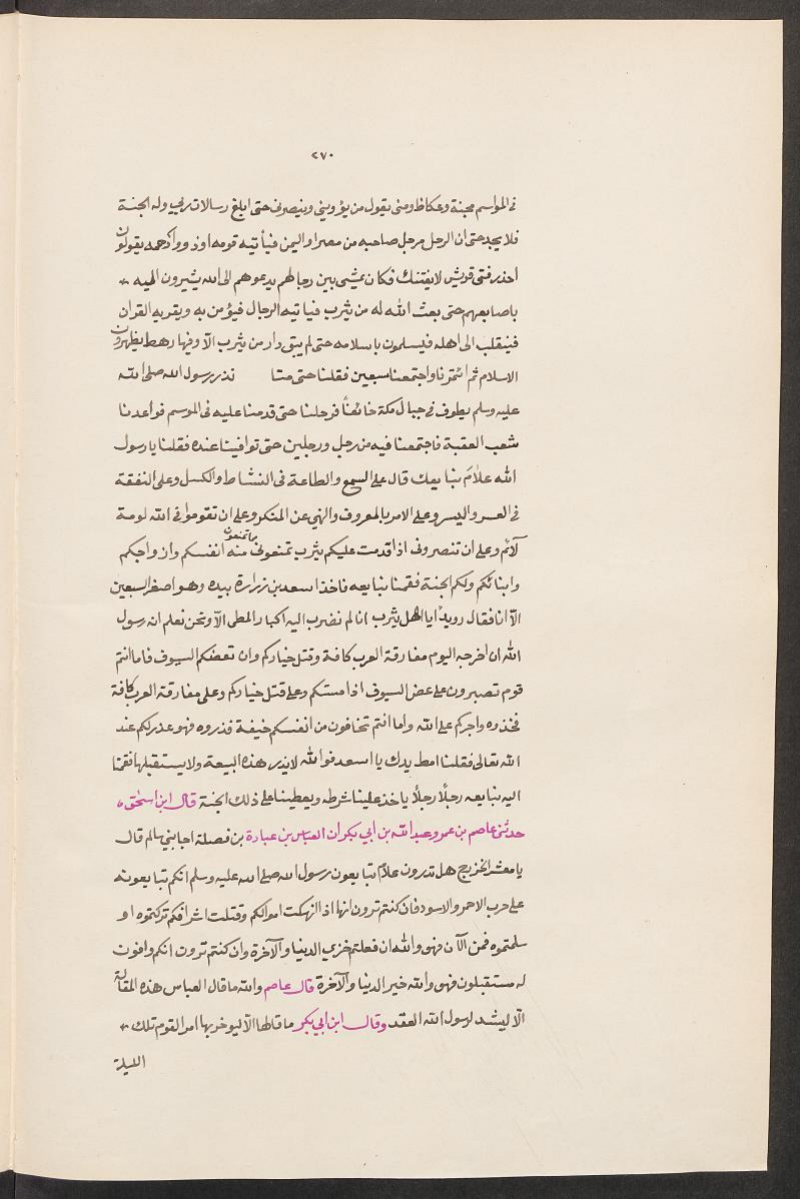 ٢٧٠
في المواسم مجنة وعكاظ ومنى يقول من يؤويني وينصرني حتى ابلغ رسالات ربي وله الجنة
فلا يجد حتى ان الرجل يرحل صاحبه من مصر او اليمن فيأتيه قومه او ذوو رحمه يقولون
احذر فتى قريش لا يفتنك فكان يمشي بين رجالهم يدعوهم الى الله يشيرون اليه
باصابعهم حتى بعث الله له من يثرب فياتيه الرجال فيؤمن به ويقريه القران
فينقلب الى اهله فيسلمون باسلامه حتى لم يبق دار من يثرب الا وفيها رهط يظهرون
الاسلام ثم ائتمرنا واجتمعنا سبعين فقلنا حتى متى نذر رسول الله صلى الله
عليه وسلم يطوف في جبال مكة خائفاً فرحلنا حتى قدمنا عليه في الموسم فواعدنا
شعب العقبة فاجتمعنا فيه من رجل ورجلين حتى توافينا عنده فقلنا يا رسول
الله علامَ نبايعك قال على السمع والطاعة في النشاط والكسل وعلى النفقة
في العسر واليسر وعلى الامر بالمعروف والنهي عن المنكر وعلى ان تقوموا في الله لومة
لائم وعلى ان تنصروني اذا قدمت عليكم يثرب تمنعوني ما تمنعون منه انفسكم وازواجكم
وابنائكم ولكم الجنة فقمنا نبايعه فاخذ اسعد بن زرارة بيده وهو اصغر السبعين
الا انا فقال رويداً يا اهل يثرب انا لم نضرب اليه اكباد المطي الا ونحن نعلم انه رسول
الله ان اخرجه اليوم مفارقة العرب كافة وقتل خياركم وان تعضكم السيوف فاما انتم
قوم تصبرون على عض السيوف اذا مستكم وعلى قتل خياركم وعلى مفارقة العرب كافة
فخذوه واجركم على الله واما انتم تخافون من انفسكم خيفة فذروه فهو عذر لكم عند
الله تعالى فقلنا امط يدك يا اسعد فوالله لا نذر هذه البيعة ولا يستقبلها فقمنا
اليه نبايعه رجلاً رجلاً ياخذ علينا شرطه ويعطينا على ذلك الجنة قال ابن اسحق
حدثني عاصم بن عمر وعبد الله بن ابي بكر ان العباس بن عبادة بن فضلة اخا بني سالم قال
يا معشر الخزرج هل تدرون علام تبايعون رسول الله صلى الله عليه وسلم انكم تبايعونه
على حرب الاحمر والاسود فان كنتم ترون انها اذا انهكت اموالكم وقتلت اشرافكم تركتموه او
سلمتموه فمن الآن فهو والله ان فعلتم خزي الدنيا والآخرة وان كنتم ترون انكم وافون
له مستقبلون فهو والله خير الدنيا والآخرة قال عاصم والله ما قال العباس هذه المقالة
الا ليشد لرسول الله العقد وقال ابن ابي بكر ما قالها الا ليؤخر بها امر القوم تلك
الليلة